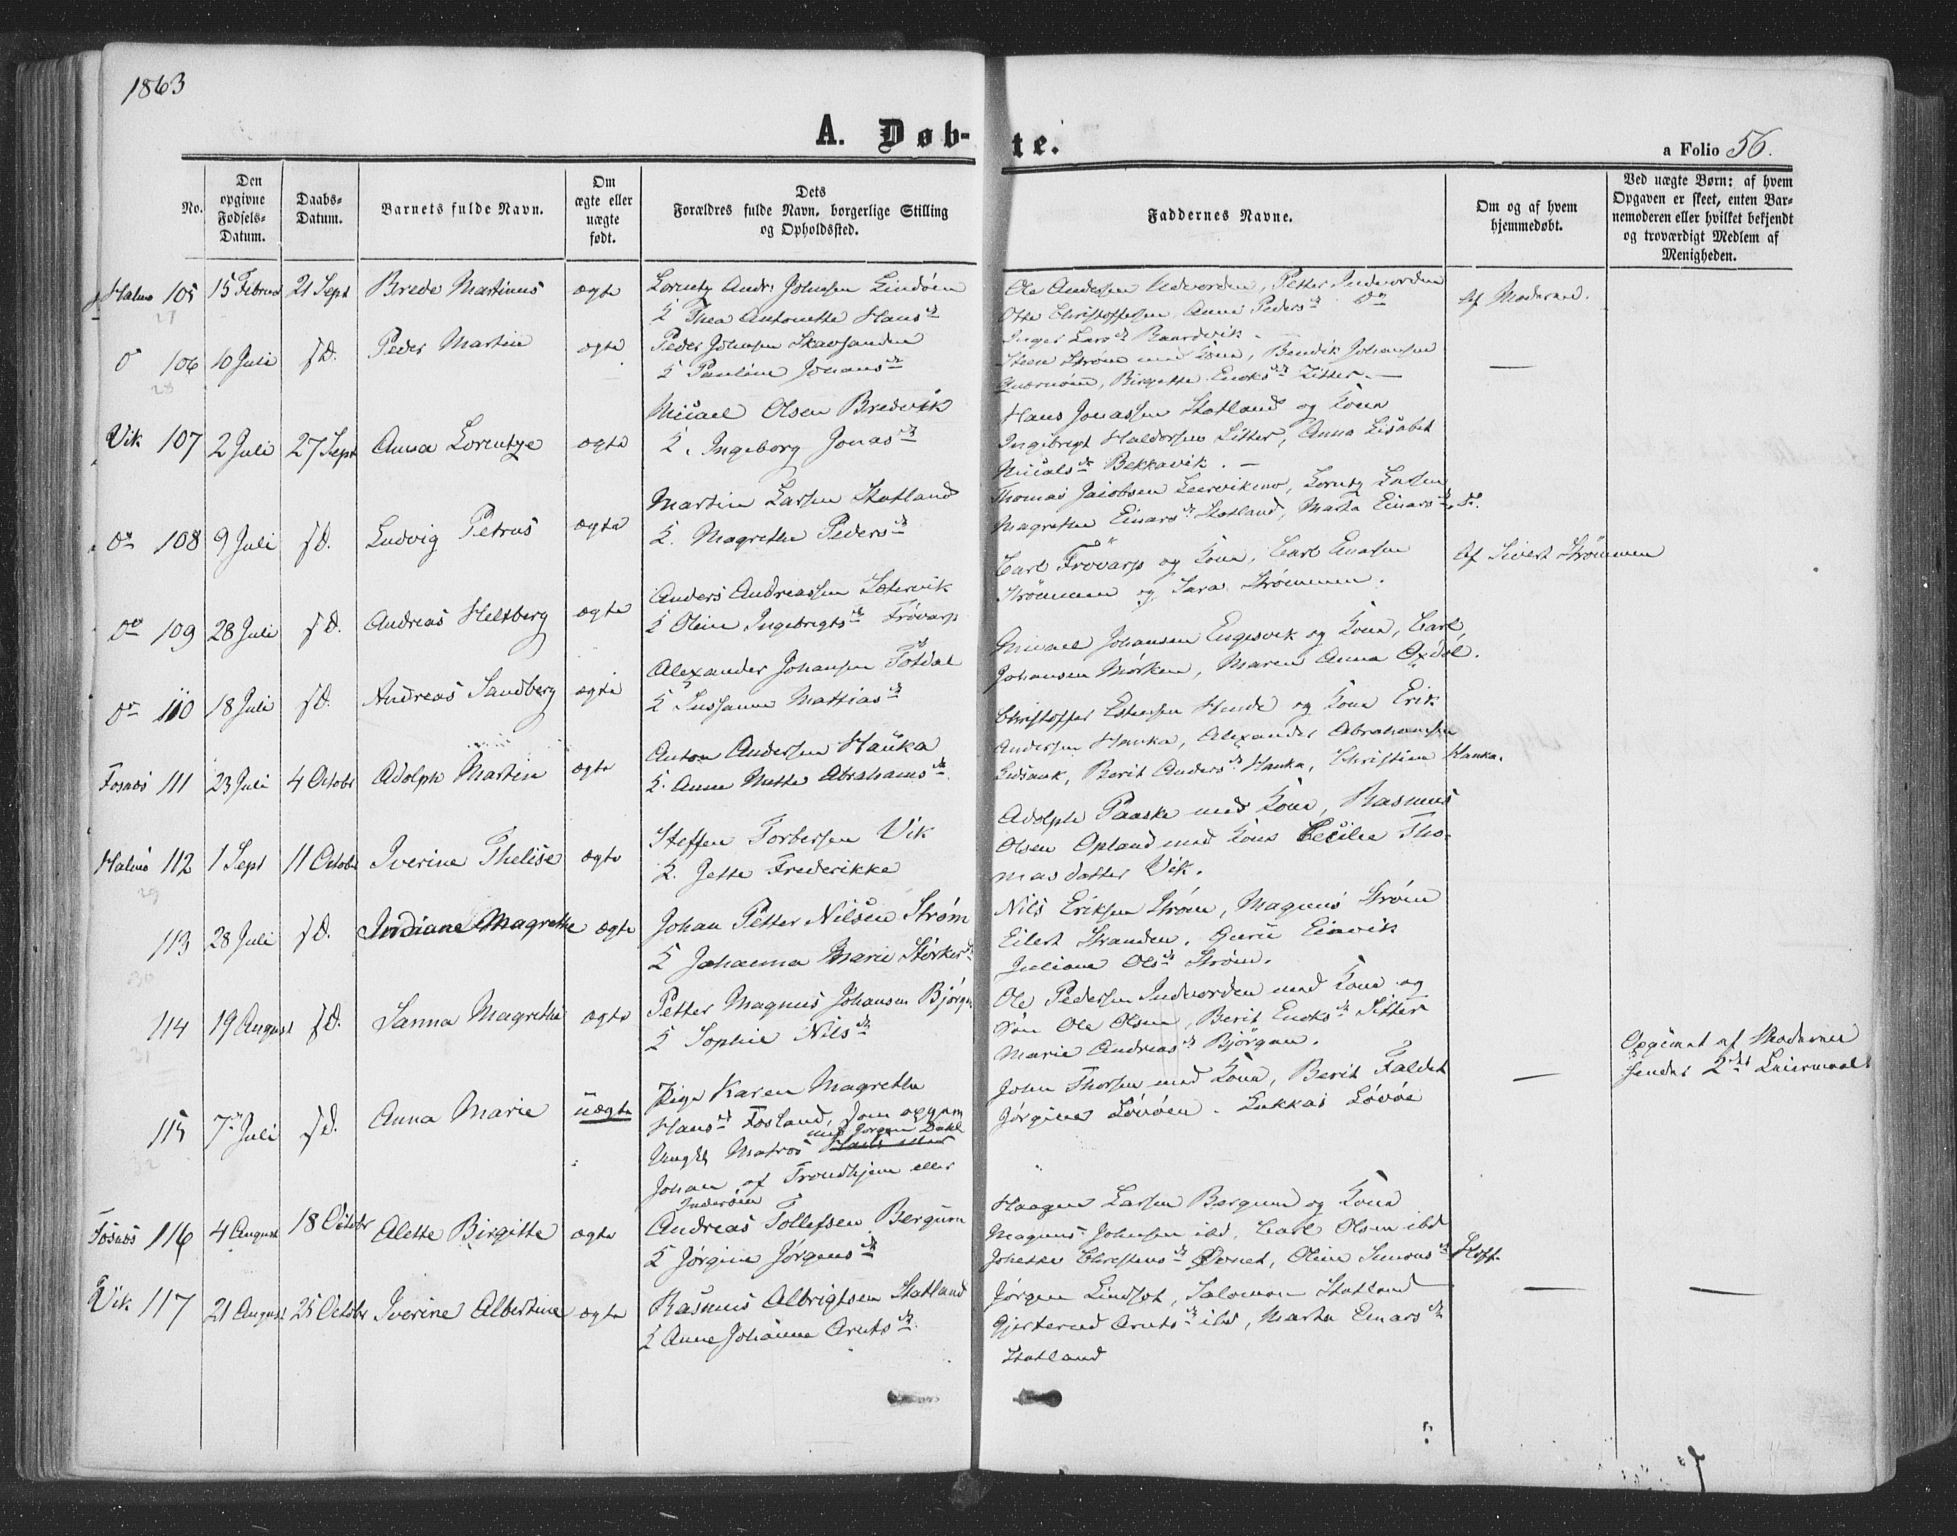 1863
A. Døb-
te.
a Folio 56.
No.
Den opgivne Fødsels-Datum.
Daabs-Datum.
Barnets fulde Navn.
Om ægte eller uægte født.
Dets Forældres fulde Navn, borgerlige Stilling og Opholdssted.
Faddernes Navne.
Om og af hvem hjemmedøbt.
Ved uægte Børn: af hvem Opgaven er skeet, enten Barnemoderen eller hvilket bekjendt og troværdigt Medlem af Menigheden.
105 15 Februar 21 Sept Brede Martinus ægte
Lorentz Andr: Johnsen Lindøen
K Thea Antonette Hans
Ole Andersen Petter
Otte Christoffersen, Anne Peders
Inger Lars
Af Moderen.
106 10 Juli Peder Martin ægte
Peder Johnsen Skavsanden
K Pauline Johans
Steen Strøm med Kone, Bendik Johansen
Birgitte Enoks Sitter. —
Vik 107 2 Juli 27 Sept Anna Lorentze ægte
Micael Olsen Bredvik
K. Ingeborg Jonas
Hans Jonassen Statland og Kone
Ingebrigt Haldorsen Sitter, Anna Lisabet
Micals Bekkavik. —
108 9 Juli Ludvig Petrus ægte
Martin Larsen Statland
K. Magrethe Peders
Thomas Jacobsen Lorentz Larsen
Magrethe Einars Statland, Marta Einars
109 28 Juli Andreas Heltberg ægte
Anders Andreassen Sætervik
K Oline Ingebrigts Frøvarp
Carl Frøvarp og Kone, Carl
Strømmen og Sara Strømmen.
Af Sivert Strømmen
110 18 Juli Andreas Sandberg ægte
Alexander Johansen Fosdal
K Sussanne Mattias
Micael Johansen Engesvik og Kone, Carl
Johansen Mørken, Maren Anna Oxdal.
Fosnæs 111 23 Juli 4 Octobr Adolph Martin ægte
Anton Andersen Hauka
K. Anne Mette Abrahams
Christoffer Estensen og Kone Erik
Andersen Hauka, Alexander Abrahamsen
Berit Anders Hauka, Christine Hauka.
112 1 Sept 11 Octobr Iverine Thelise ægte
Steffen Torbersen Vik
K. Jette Frederikke
Adolph Paaske med Kone, Rasmus
Olsen Opland med Kone Cecilie Tho-
masdatter Vik.
113 28 Juli Indiane Magrethe ægte
Johan Petter Nilsen Strøm
K Johanna Marie Størkers
Nils Eriksen Strøm, Magnus Strøm
Eilert Stranden, Guru Einvik
Juliane Ols Strøm.
114 19 August Sanna Magrethe ægte
Petter Magnus Johansen Bjørgan
K Sophie Nils
Ole Pedersen Indvorden med Kone og
Søn Ole Olsen, Berit Enoks Sitter
Marie Andreas Bjørgan.
115 7 Juli Anna Marie uægte
Pige Karen Magrethe
Hans Fosland, som opgav
Ungkl Matros
Johan af Trondhjem eller
Inderøen
John Thorsen med Kone, Berit Faldet
Jørgine Løvøen. Lukkas Løvøe
—
Opgivet af Moderen
hendes 2det Leiermaal
Fosnæs 116 4 August 18 Octobr Alette Birgitte ægte
Andreas Tollefsen Bergum
K Jørgine Jørgens
Haagen Larsen Bergum og Kone
Magnus Johnsen ibd, Carl Olsen ibd
Christens Oline Simons Hoft.
Vik 117 21 August 25 Octobr Iverine Albertine ægte
Rasmus Albrigtsen Statland
K Anne Johanne Arnts
Jørgen Lindset, Salomon Statland
Arnts ibd, Marta Einars
Statland
— —